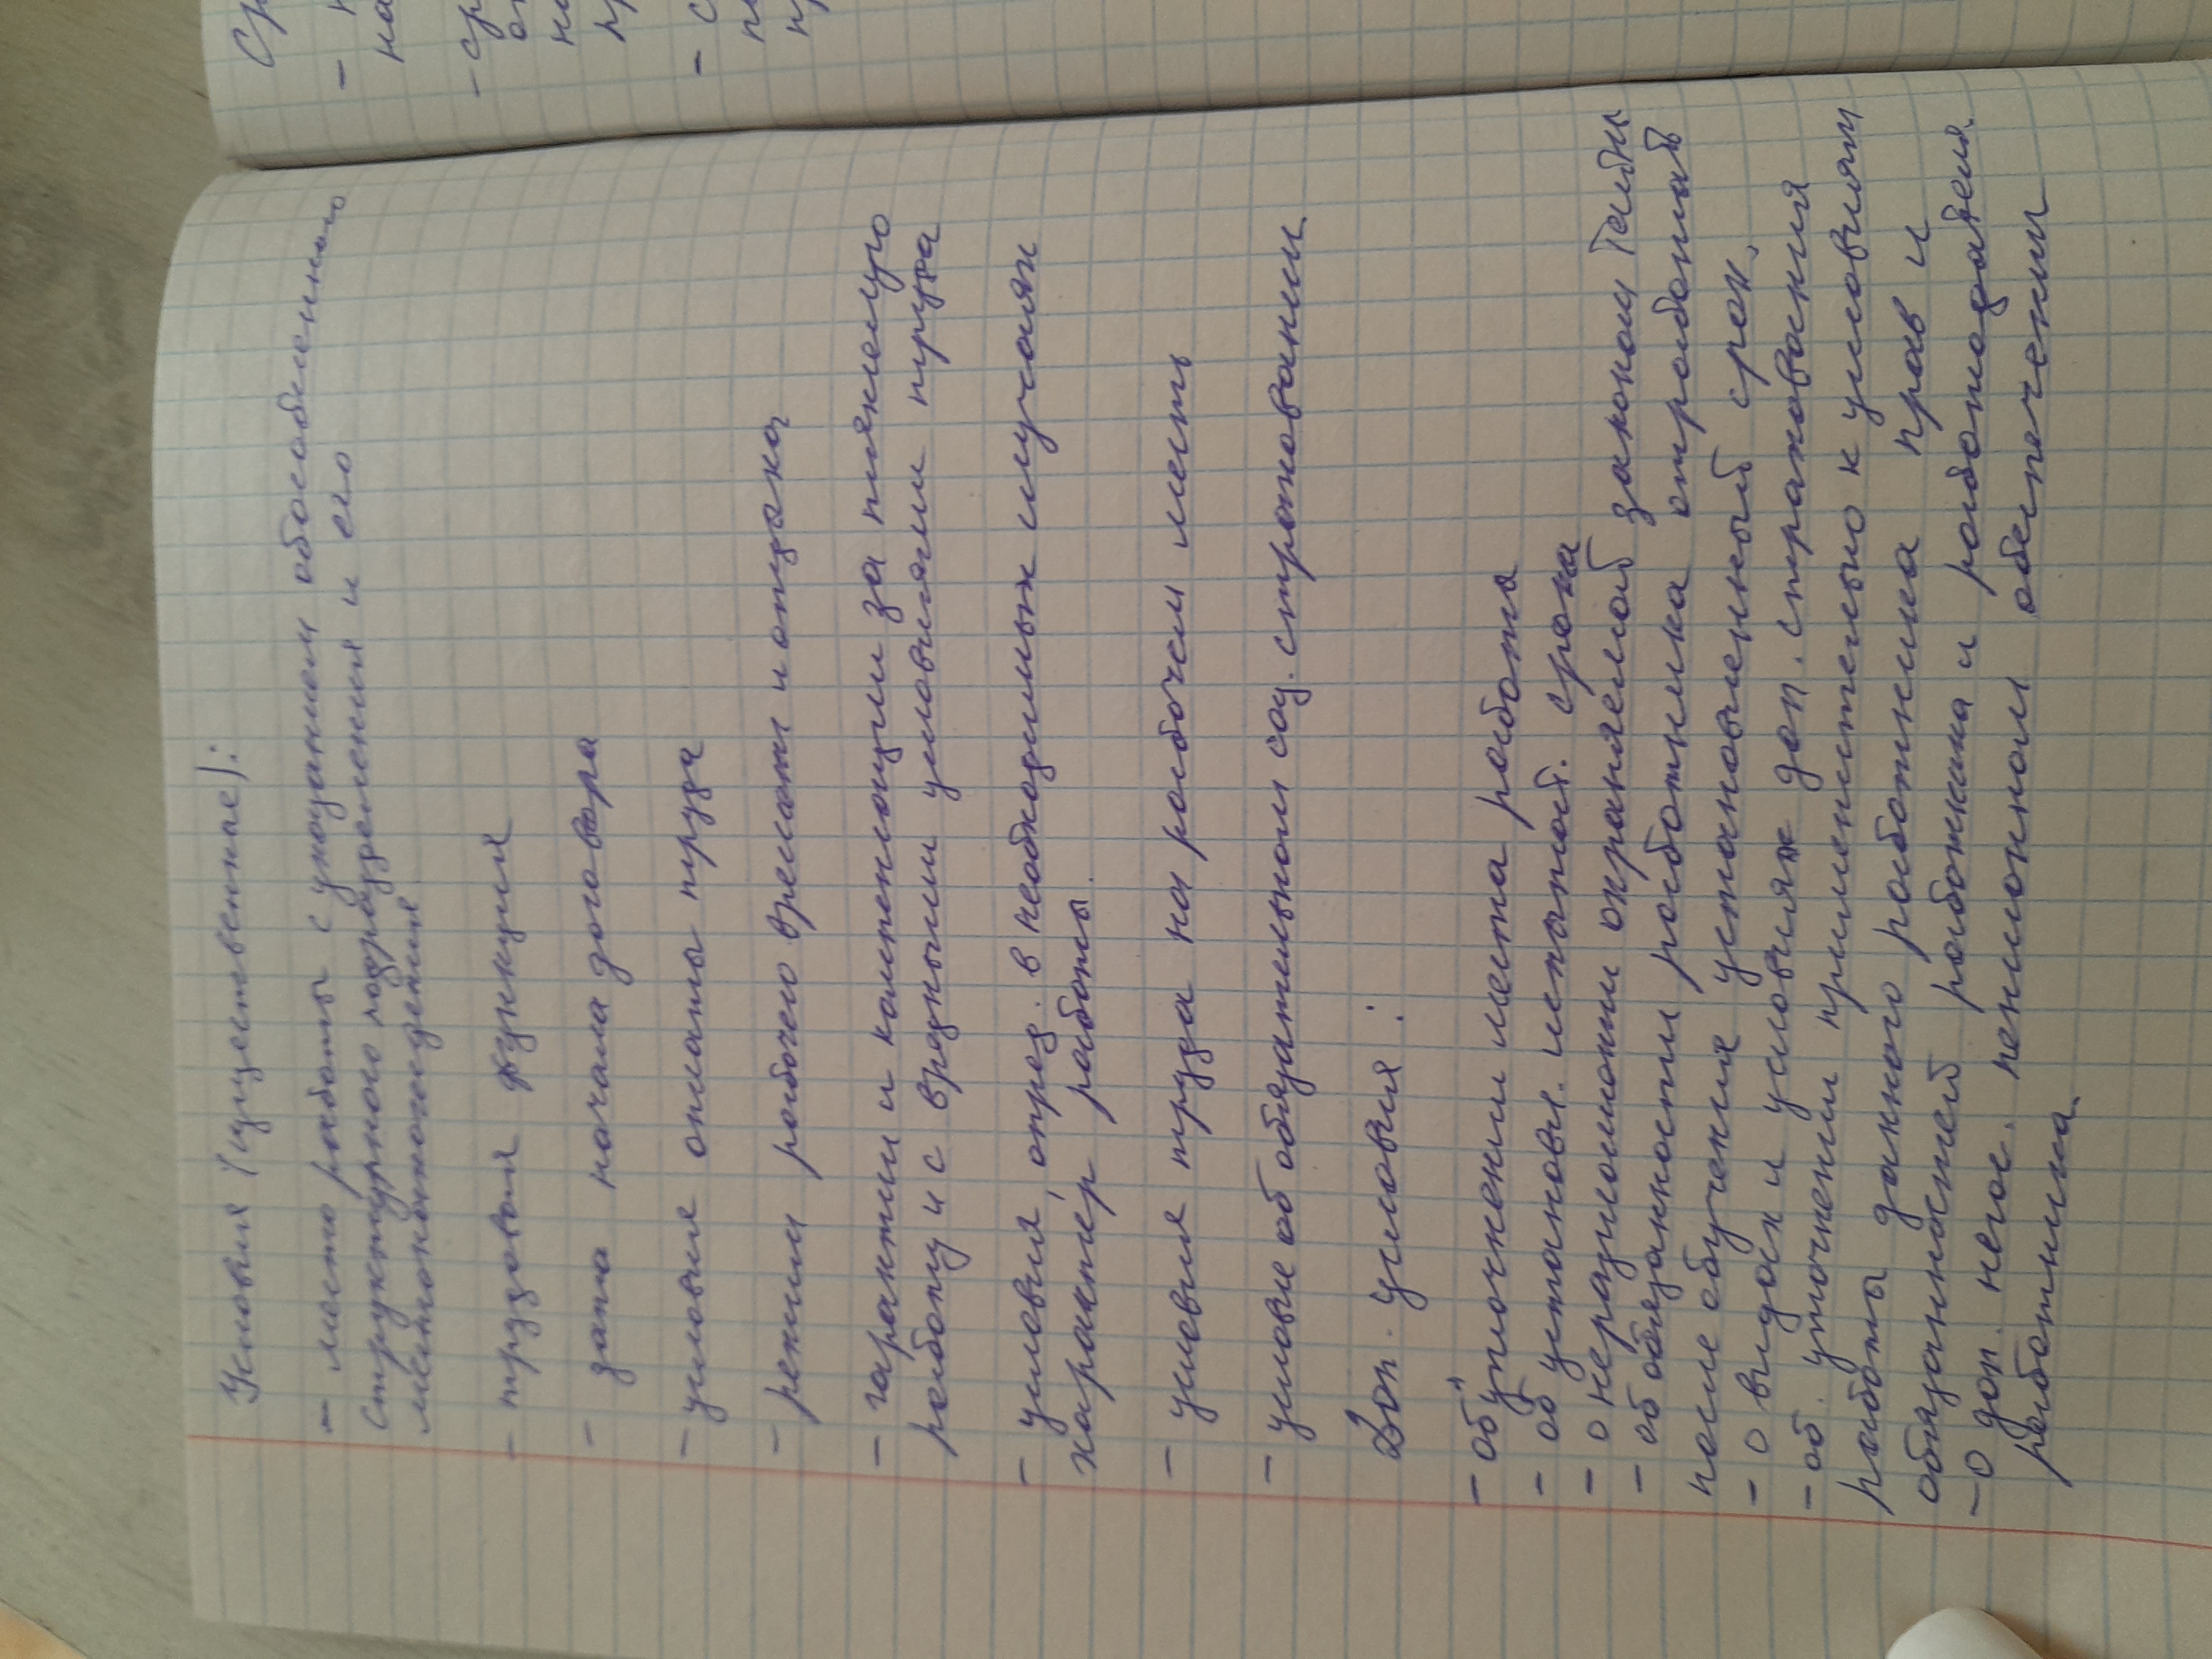 Условия (существенные):
- место работы с указанием обособленного
структурного подразделения и его
местонахождения.
- трудовая функция
- дата начала договора
- условия оплаты труда
- режим рабочего времени и отдыха
- гарантии и компенсации за тяжелую
работу и с вредными условиями труда
- условия, опред. в необходимых случаях
характер работы.
- условия труда на рабочем месте
- условие об обязательном соц. страховании.
Доп. условия:
- об уточнении места работы
- об установл. испытат. срока
- о неразглашении охраняемой законом тайны
- об обязанности работника отработать
после обучения установленный срок.
- о видах и условиях доп. страхования
- об. уточнении применительно к условиям
работы данного работника прав и
обязанностей работника и работодателя
- о доп. негос. пенсионом обеспечении
работника.
Ср
-
на
- ср
- с